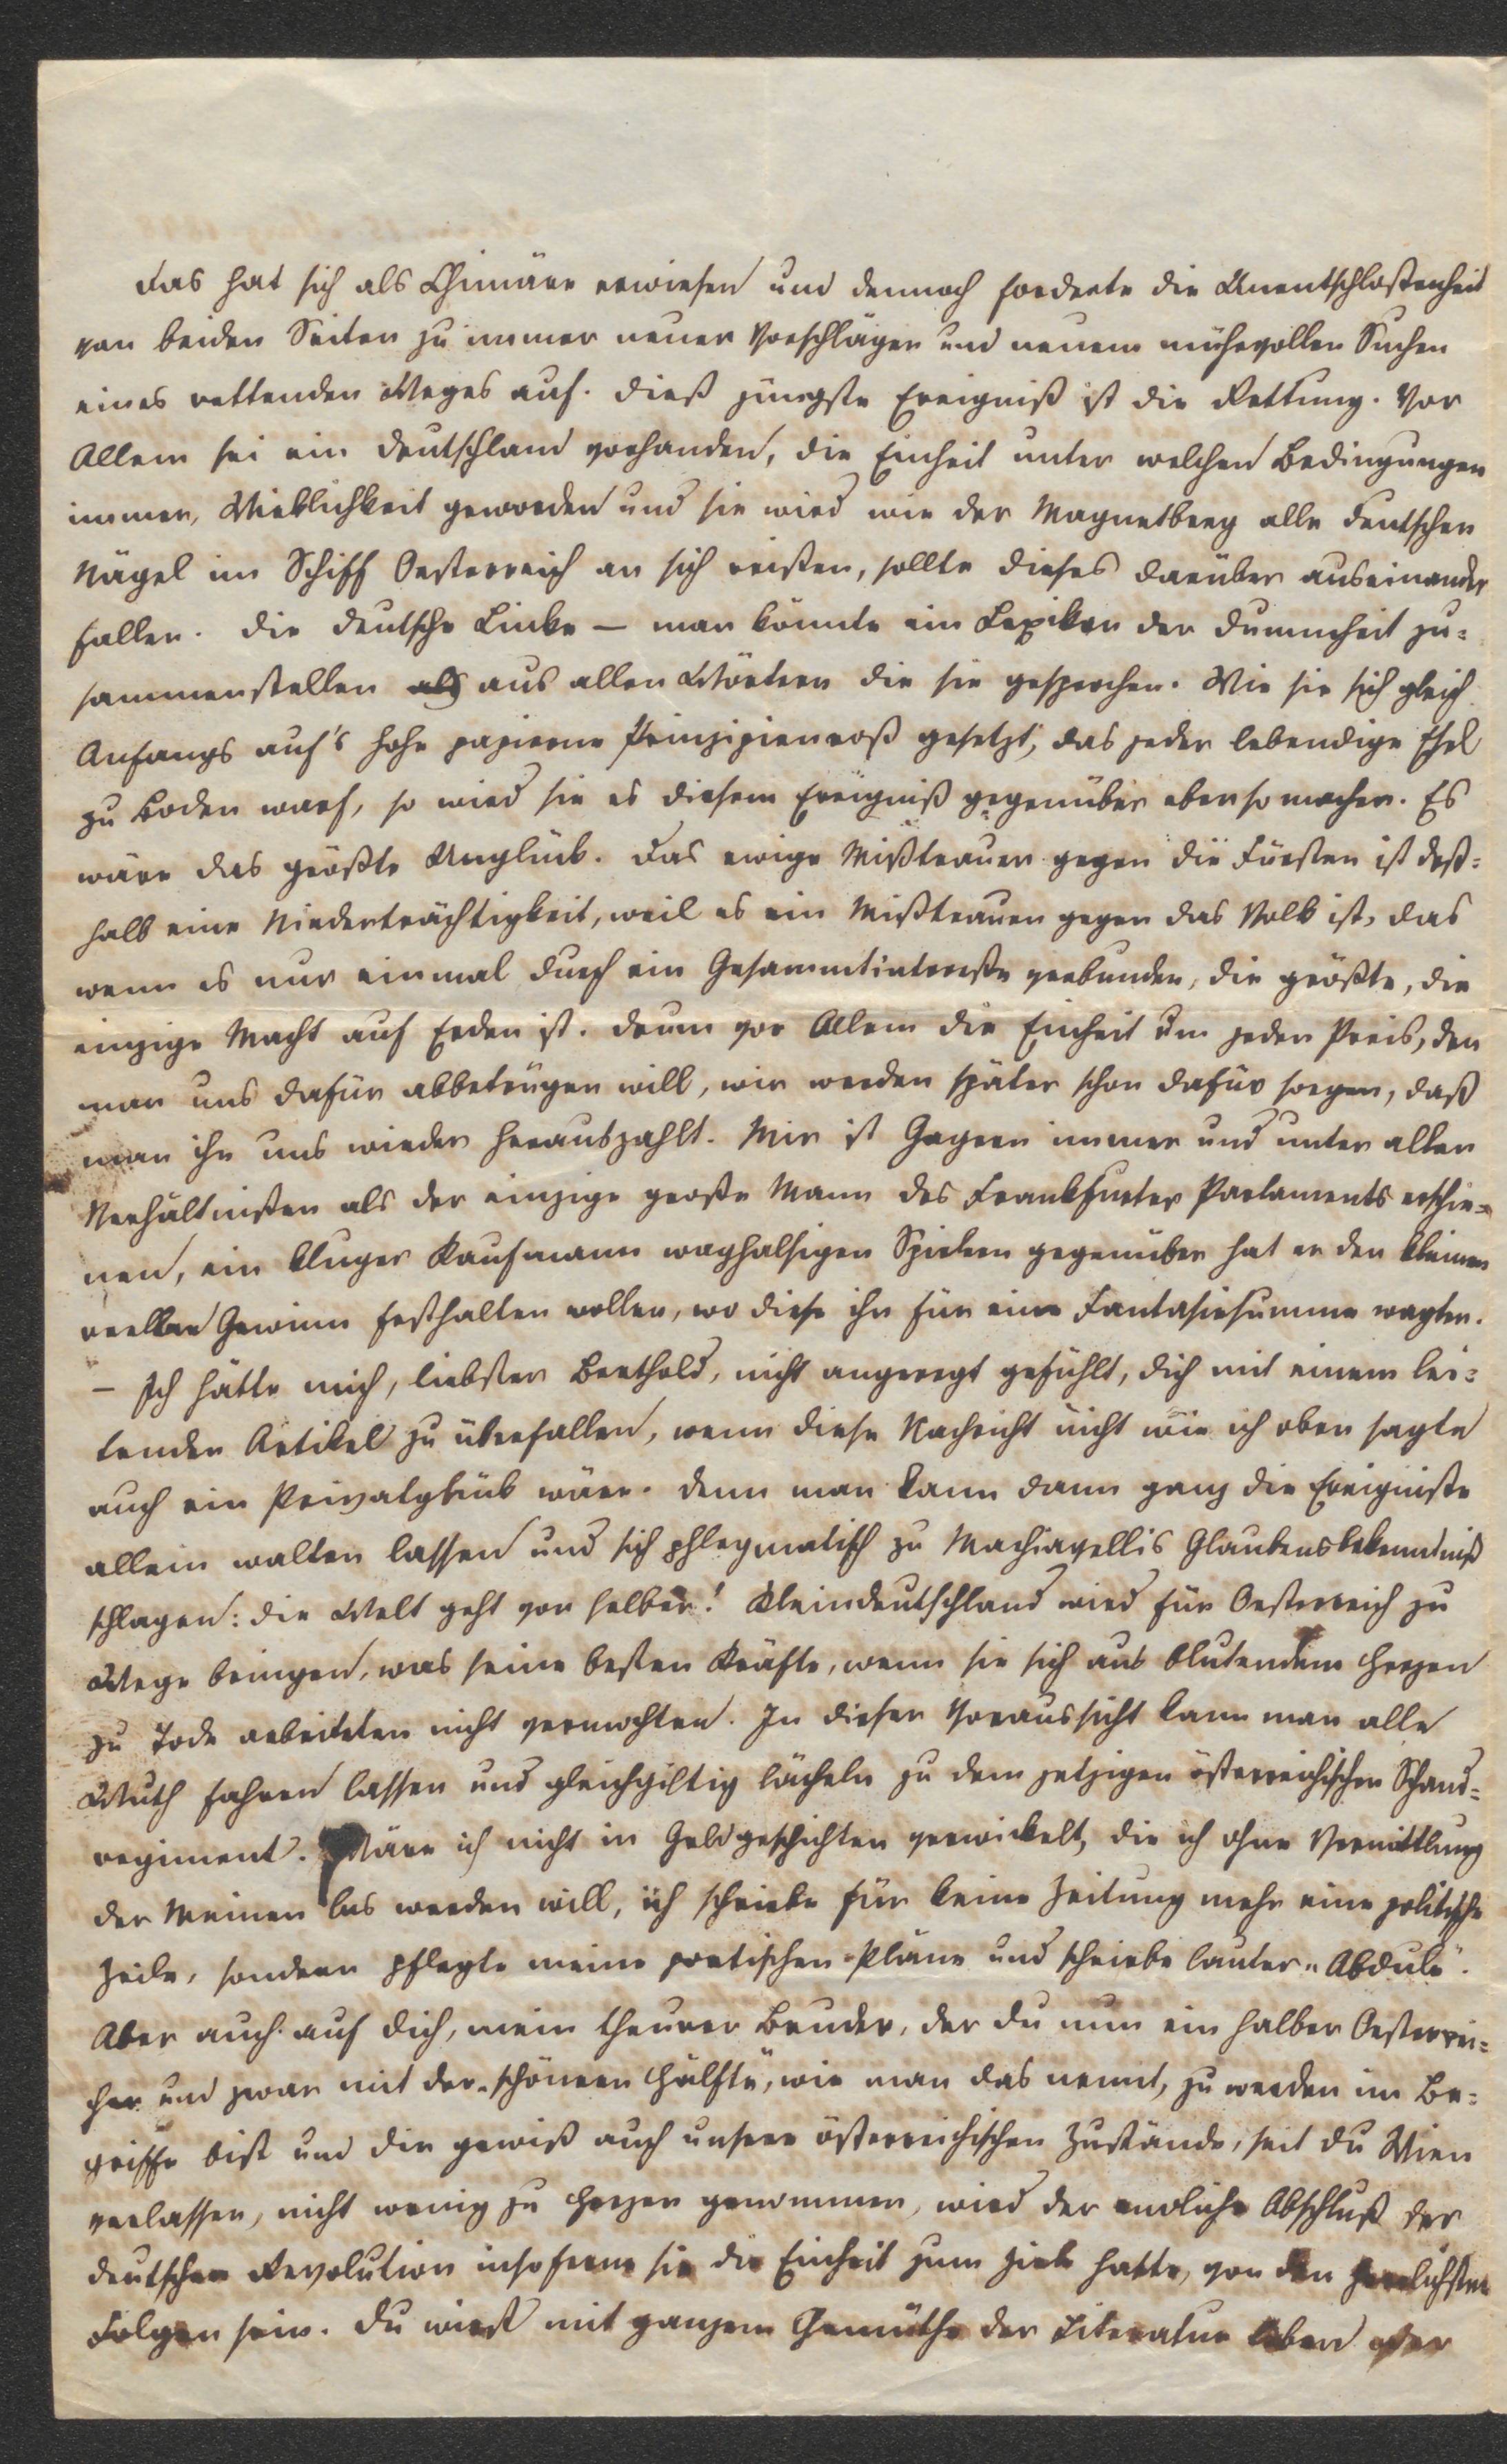 Das hat sich als Chimäre erwiesen und dennoch forderte die Unentschloßenheit
von beiden Seiten zu immer neuen Vorschlägen und neuem mühevollen Suchen
eines rettenden Weges auf. Dieß jüngste Ereigniß ist die Rettung. Vor
Allem sei ein Deutschland vorhanden, die Einheit unter welchen Bedingungen
immer, Wirklichkeit geworden und sie wird wie der Magnetberg alle deutschen
Nägel im Schiff Oesterreich an sich reißen, sollte dieses darüber auseinander
fallen. Die deutsche Linke – man könnte ein Lexikon der Dummheit zu-
sammenstellen als aus allen Wörtern die sie gesprochen. Wie sie sich gleich
Anfangs auf's hohe papierne Prinzipienroß gesetzt, das jeder lebendige Esel
zu Boden warf, so wird sie es diesem Ereigniß gegenüber ebenso machen. Es
wäre das größte Unglück. Das ewige Mißtrauen gegen die Fürsten ist deß-
halb eine Niederträchtigkeit, weil es ein Mißtrauen gegen das Volk ist, das
wenn es nur einmal durch ein Gesammtintereße verbunden, die größte, die
einzige Macht auf Erden ist. Drum vor Allem die Einheit um jeden Preis, den
man uns dafür abbetrügen will, wir werden später schon dafür sorgen, daß
man ihn uns wieder herauszahlt. Mir ist Gagern immer und unter allen
Verhältnißen als der einzige große Mann des Frankfurter Parlaments erschie-
nen, ein kluger Kaufmann waghalsigen Spielern gegenüber hat er den kleinen
reellen Gewinn festhalten wollen, wo diese ihn für eine Fantasiesumme wagten.
– Ich hätte mich, liebster Berthold, nicht angeregt gefühlt, dich mit einem lei-
tenden Artikel zu überfallen, wenn diese Nachricht nicht wie ich oben sagte
auch ein Privatglück wäre. Denn man kann dann ganz die Ereigniße
allein walten lassen und sich phlegmatisch zu Machiavellis Glaubensbekenntniß
schlagen: die Welt geht von selber! Kleindeutschland wird für Oesterreich zu
Wege bringen, was seine besten Kräfte, wenn sie sich aus blutendem Herzen
zu Tode arbeiteten nicht vermochten. In dieser Voraussicht kann man alle
Wuth fahren lassen und gleichgiltig lächeln zu dem jetzigen österreichischen Schand-
regiment. Wäre ich nicht in Geldgeschichten verwickelt, die ich ohne Vermittlung
der Meinen los werden will, ich schriebe für keine Zeitung mehr eine politische
Zeile, sondern pflegte meine poetischen Pläne und schriebe lauter „Abduls".
Aber auch auf dich, mein theurer Bruder, der du nun ein halber Oesterrei-
cher und zwar mit der „schönern Hälfte", wie man das nennt, zu werden im Be-
griffe bist und dir gewiß auch unsere österreichischen Zustände, seit du Wien
verlassen, nicht wenig zu Herzen genommen, wird der endliche Abschluß der
deutschen Revolution insoferne sie die Einheit zum Ziele hatte, von den herrlichsten
Folgen sein. Du wirst mit ganzem Gemüthe der Literatur leben oder